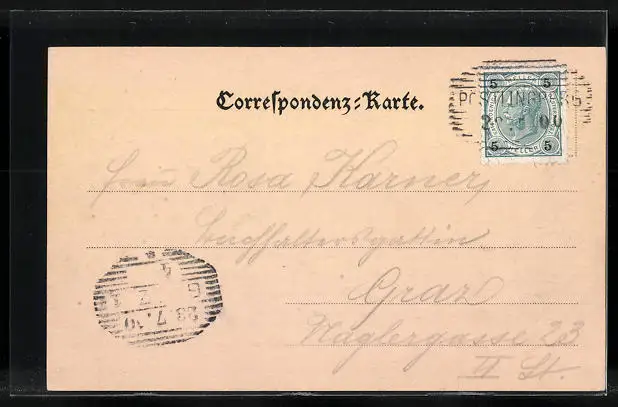 Correspondenz-Karte.
PÖSTLINGBERG
5 5
5 5
Frau Rosa Karner,
Buchhaltersgattin
Graz
Naglergasse 23
II St.
23.7.10